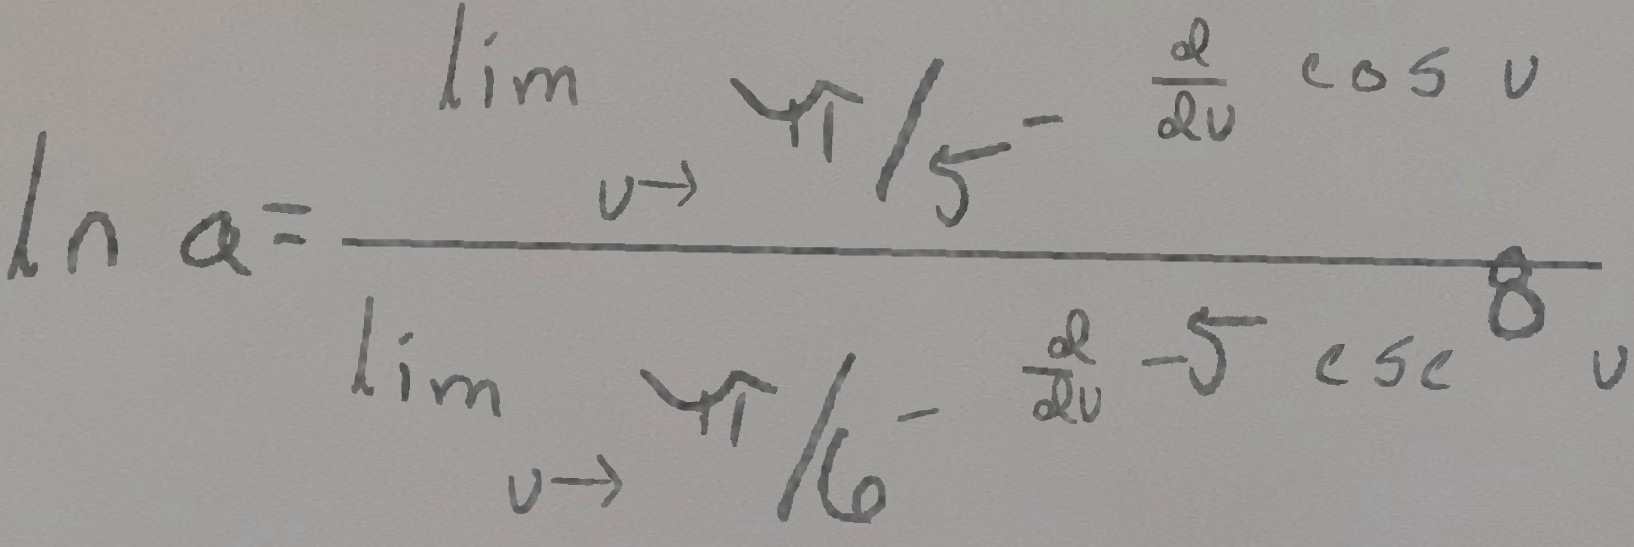 \ln a = \frac{\lim_{v \to \pi/5^-} \frac{d}{dv} \cos v}{\lim_{v \to \pi/6^-} \frac{d}{dv} -5 \csc^8 v}